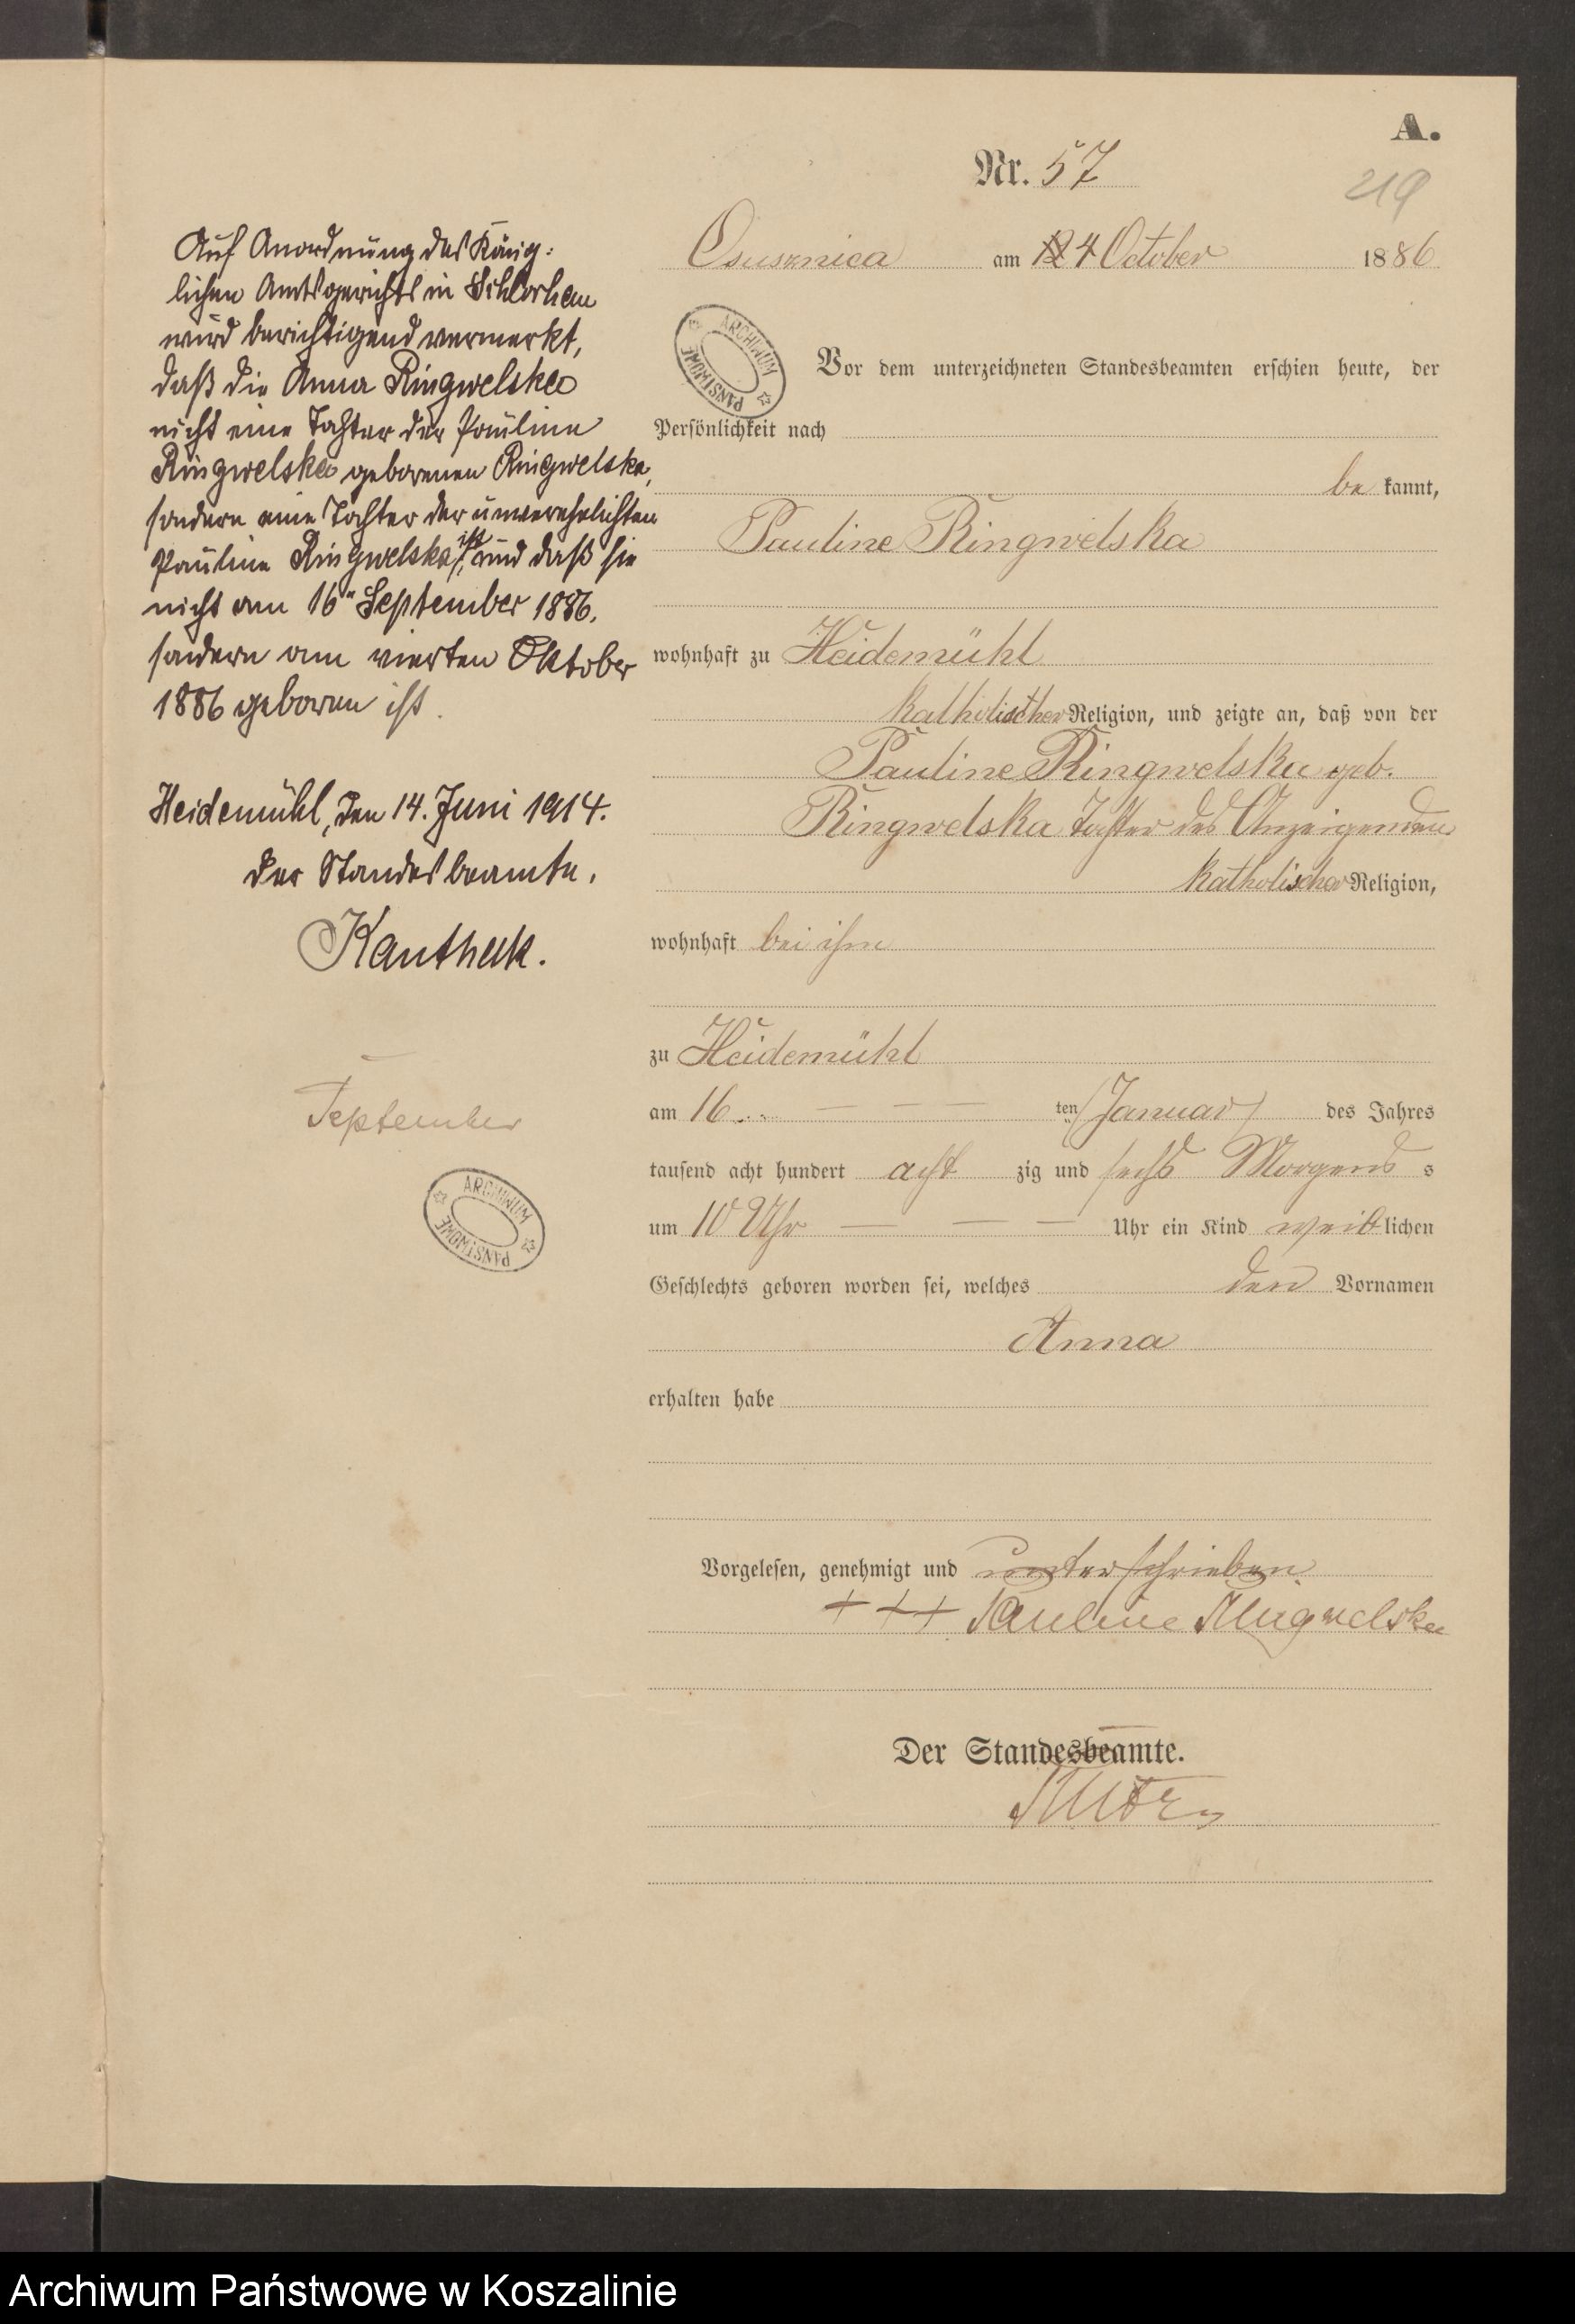 A.
Nr. 57
219
Osusznica am 4 October 1886
Vor dem unterzeichneten Standesbeamten erschien heute, der
Persönlichkeit nach
be kannt,
Pauline Ringwelska
wohnhaft zu Heidemühl
katholischer Religion, und zeigte an, daß von der
Pauline Ringwelska geb.
Ringwelska Tochter des Anzeigenden
katholischer Religion,
wohnhaft bei ihm
zu Heidemühl
am 16 ten (Januar) des Jahres
tausend acht hundert acht zig und sechs Morgens s
um 10 Uhr Uhr ein Kind weiblichen
Geschlechts geboren worden sei, welches den Vornamen
Anna
erhalten habe
Vorgelesen, genehmigt und unterschrieben
+++ Pauline Ringwelska
Der Standesbeamte.
Auf Anordnung des König:
lichen Amtsgerichts in Schlochau
wird berichtigend vermerkt,
daß die Anna Ringwelska
nicht eine Tochter der Pauline
Ringwelska geborenen Ringwelska,
sondern eine Tochter der unverehelichten
Pauline Ringwelska ist, und daß sie
nicht am 16" September 1886,
sondern am vierten Oktober
1886 geboren ist.
Heidemühl, den 14. Juni 1914.
Der Standesbeamte.
Kanthak.
September
ARCHIWUM PAŃSTWOWE
ARCHIWUM PAŃSTWOWE
Archiwum Państwowe w Koszalinie